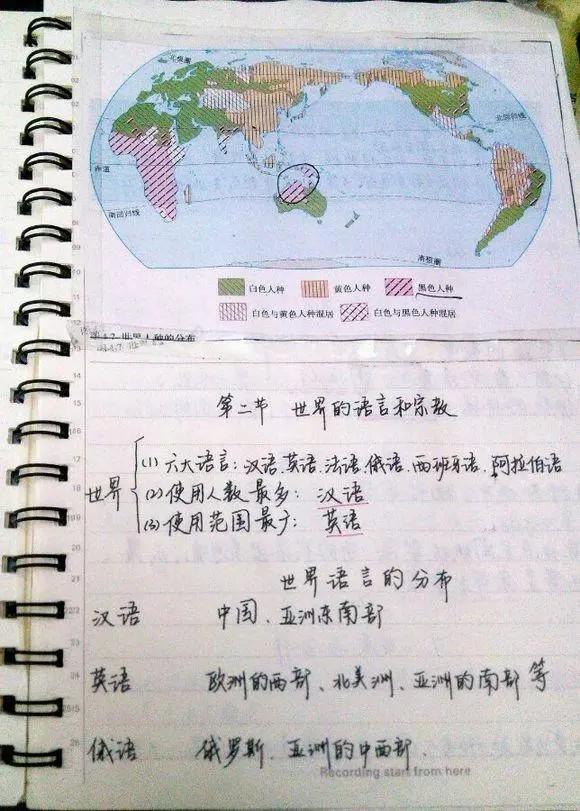 北极圈
北回归线
赤道
南回归线
南极圈
白色人种 黄色人种 黑色人种
白色与黄色人种混居 白色与黑色人种混居
世界人种的分布
第二节 世界的语言和宗教
世界
(1) 六大语言:汉语、英语、法语、俄语、西班牙语、阿拉伯语
(2) 使用人数最多: 汉语
(3) 使用范围最广: 英语
世界语言的分布
汉语 中国、亚洲东南部
英语 欧洲的西部、北美洲、亚洲的南部等
俄语 俄罗斯、亚洲的中西部.
Recording start from here